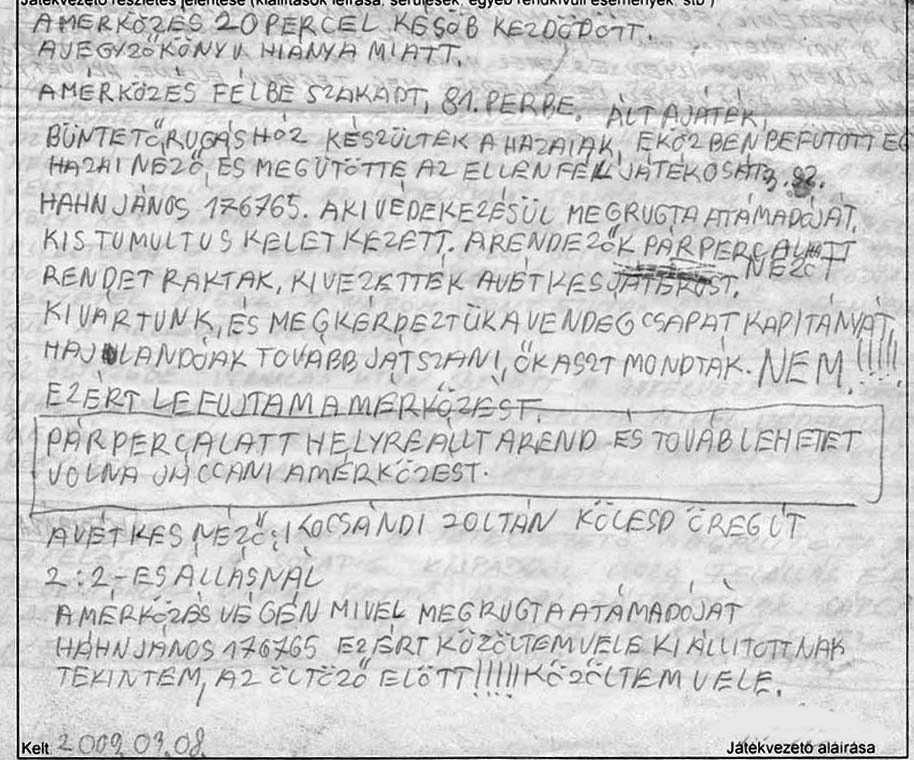 Játékvezető részletes jelentése (kiállítások leírása, sérülések, egyéb rendkívüli események, stb.)
A MÉRKŐZÉS 20 PERCEL KÉSŐB KEZDŐDÖTT.
A JEGYZŐKÖNYV HIÁNYA MIATT.
A MÉRKŐZÉS FÉLBE SZAKADT, 81. PERBE. ÁLT A JÁTÉK,
BÜNTETŐRUGÁSHOZ KÉSZÜLTEK A HAZAIAK, EKÖZBEN BEFUTOTT EG
HAZAI NÉZŐ, ÉS MEGÜTÖTTE AZ ELLENFÉL JÁTÉKOSÁT
HAHN JÁNOS 176765. AKI VÉDEKEZÉSÜL MEGRUGTA A TÁMADÓJÁT,
KIS TUMULTUS KELETKEZETT. A RENDEZŐK PÁR PERC ALATT
RENDET RAKTAK, KIVEZETTÉK A VÉTKES NÉZŐT
KIVÁRTUNK, ÉS MEGKÉRDEZTÜK A VENDÉGCSAPAT KAPITÁNYÁT,
HAJLANDÓAK TOVÁBB JÁTSZANI, ŐK ASZT MONDTÁK. NEM!!!!!
EZÉRT LEFUJTAM A MÉRKŐZÉST.
PÁR PERC ALATT HELYREÁLLT A REND ÉS TOVÁB LEHETET
VOLNA JÁCCANI A MÉRKŐZÉST.
A VÉTKES NÉZŐ: KOCSÁNDI ZOLTÁN KÖLESD ÖREG ÚT
2:2-ES ÁLLÁSNÁL
A MÉRKŐZÉS VÉGÉN MIVEL MEGRUGTA A TÁMADÓJÁT
HAHN JÁNOS 176765 EZÉRT KÖZÖLTEM VELE KIÁLLITOTTNAK
TEKINTEM, AZ ÖLTÖZŐ ELŐTT!!!!! KÖZÖLTEM VELE.
Kelt 2009.03.08.
Játékvezető aláírása